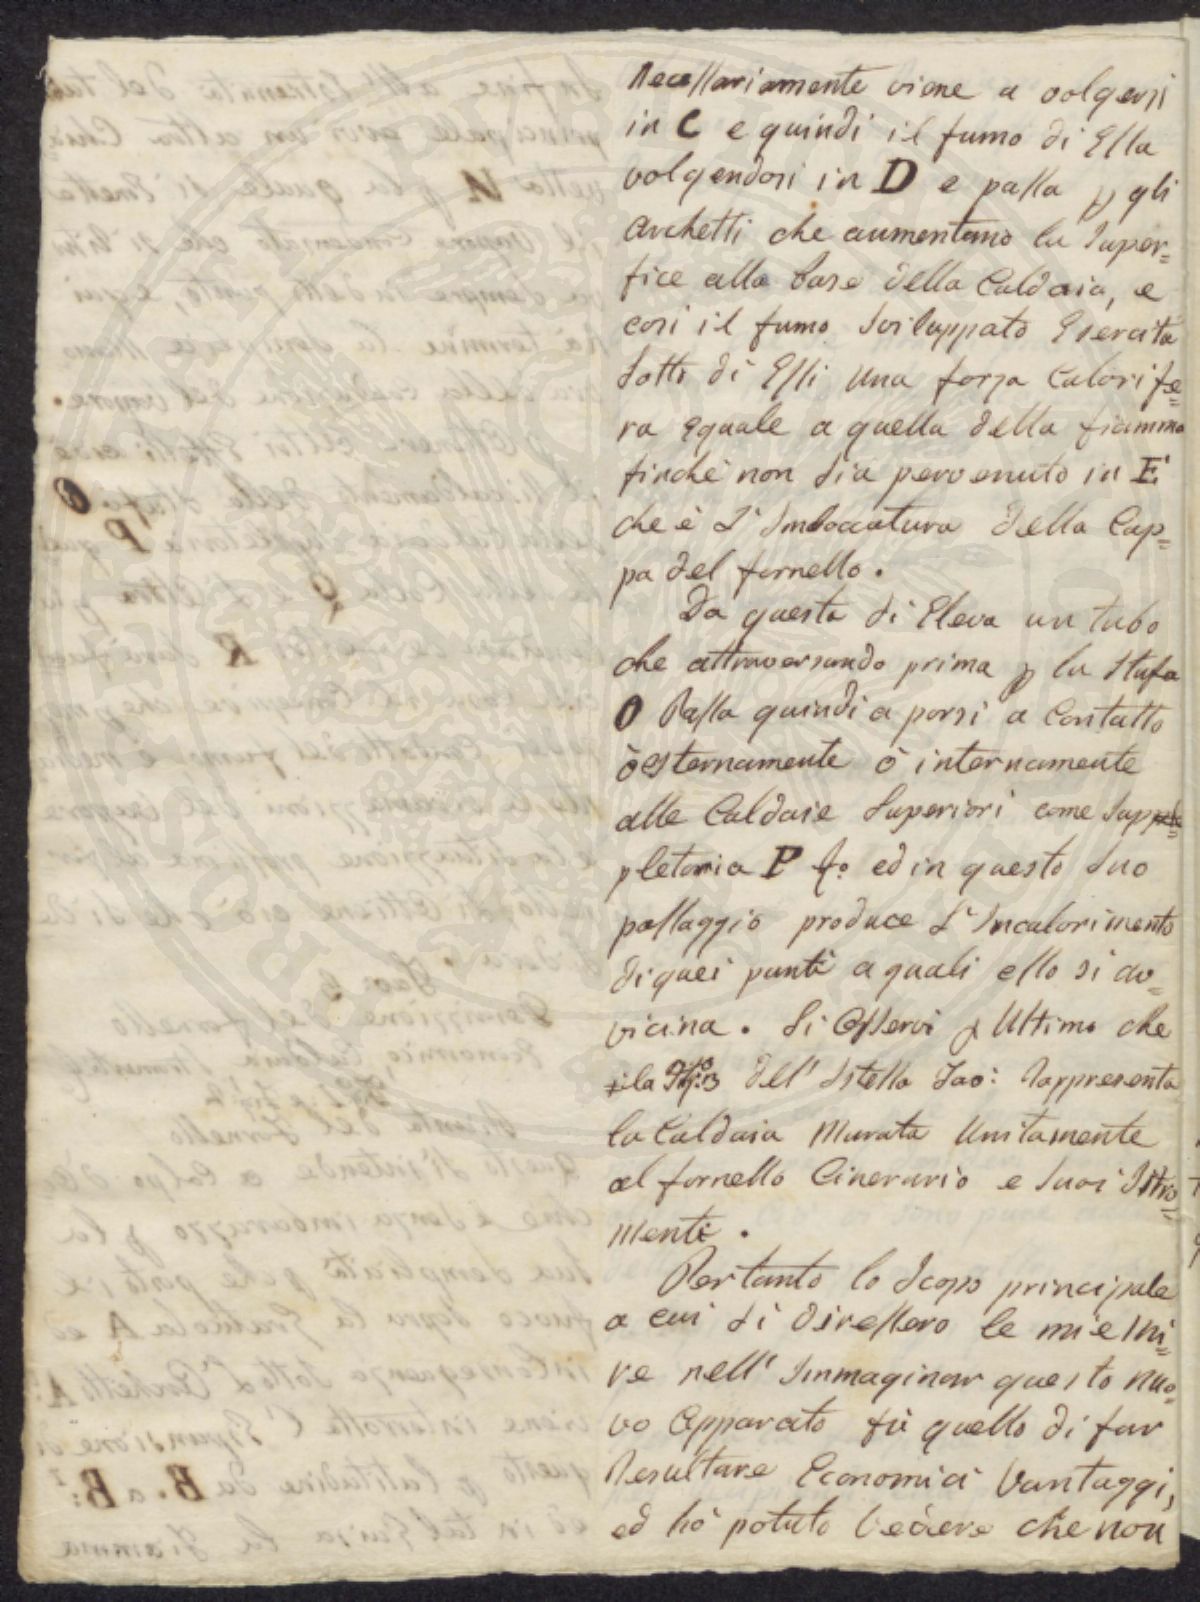 Necessariamente viene a volgersi
in C e quindi il fumo di Essa
volgendosi in D e passa p gli
Archetti che aumentano la Super=
fice alla base della Caldaia, e
cosi il fumo Sviluppato Esercita
Sotto di Essi una forza Calorife=
ra equale a quella della fiamma
finchè non sia pervenuto in E
che è L'Imboccatura della Cap=
pa del fornello.
Da questa si Eleva un tubo
che attraversando prima p la Stufa
O Passa quindi a porsi a Contatto
ò esternamente ò internamente
alle Caldaie Superiori come Sup
pletoria P ed in questo Suo
passaggio produce L'Incalorimento
di quei punti a quali esso si av=
vicina. Si Osservi p Ultimo che
la dell'Istessa Tav: Rappresenta
la Caldaia Murata Unitamente
al fornello Cinerario e Suoi Istro=
menti.
Pertanto lo Scopo principale
a cui Si diressero le mie Mi=
re nell'Immaginar questo nuo=
vo Apparato fù quello di far
Resultare Economici Vantaggi,
ed hò potuto Vedere che non